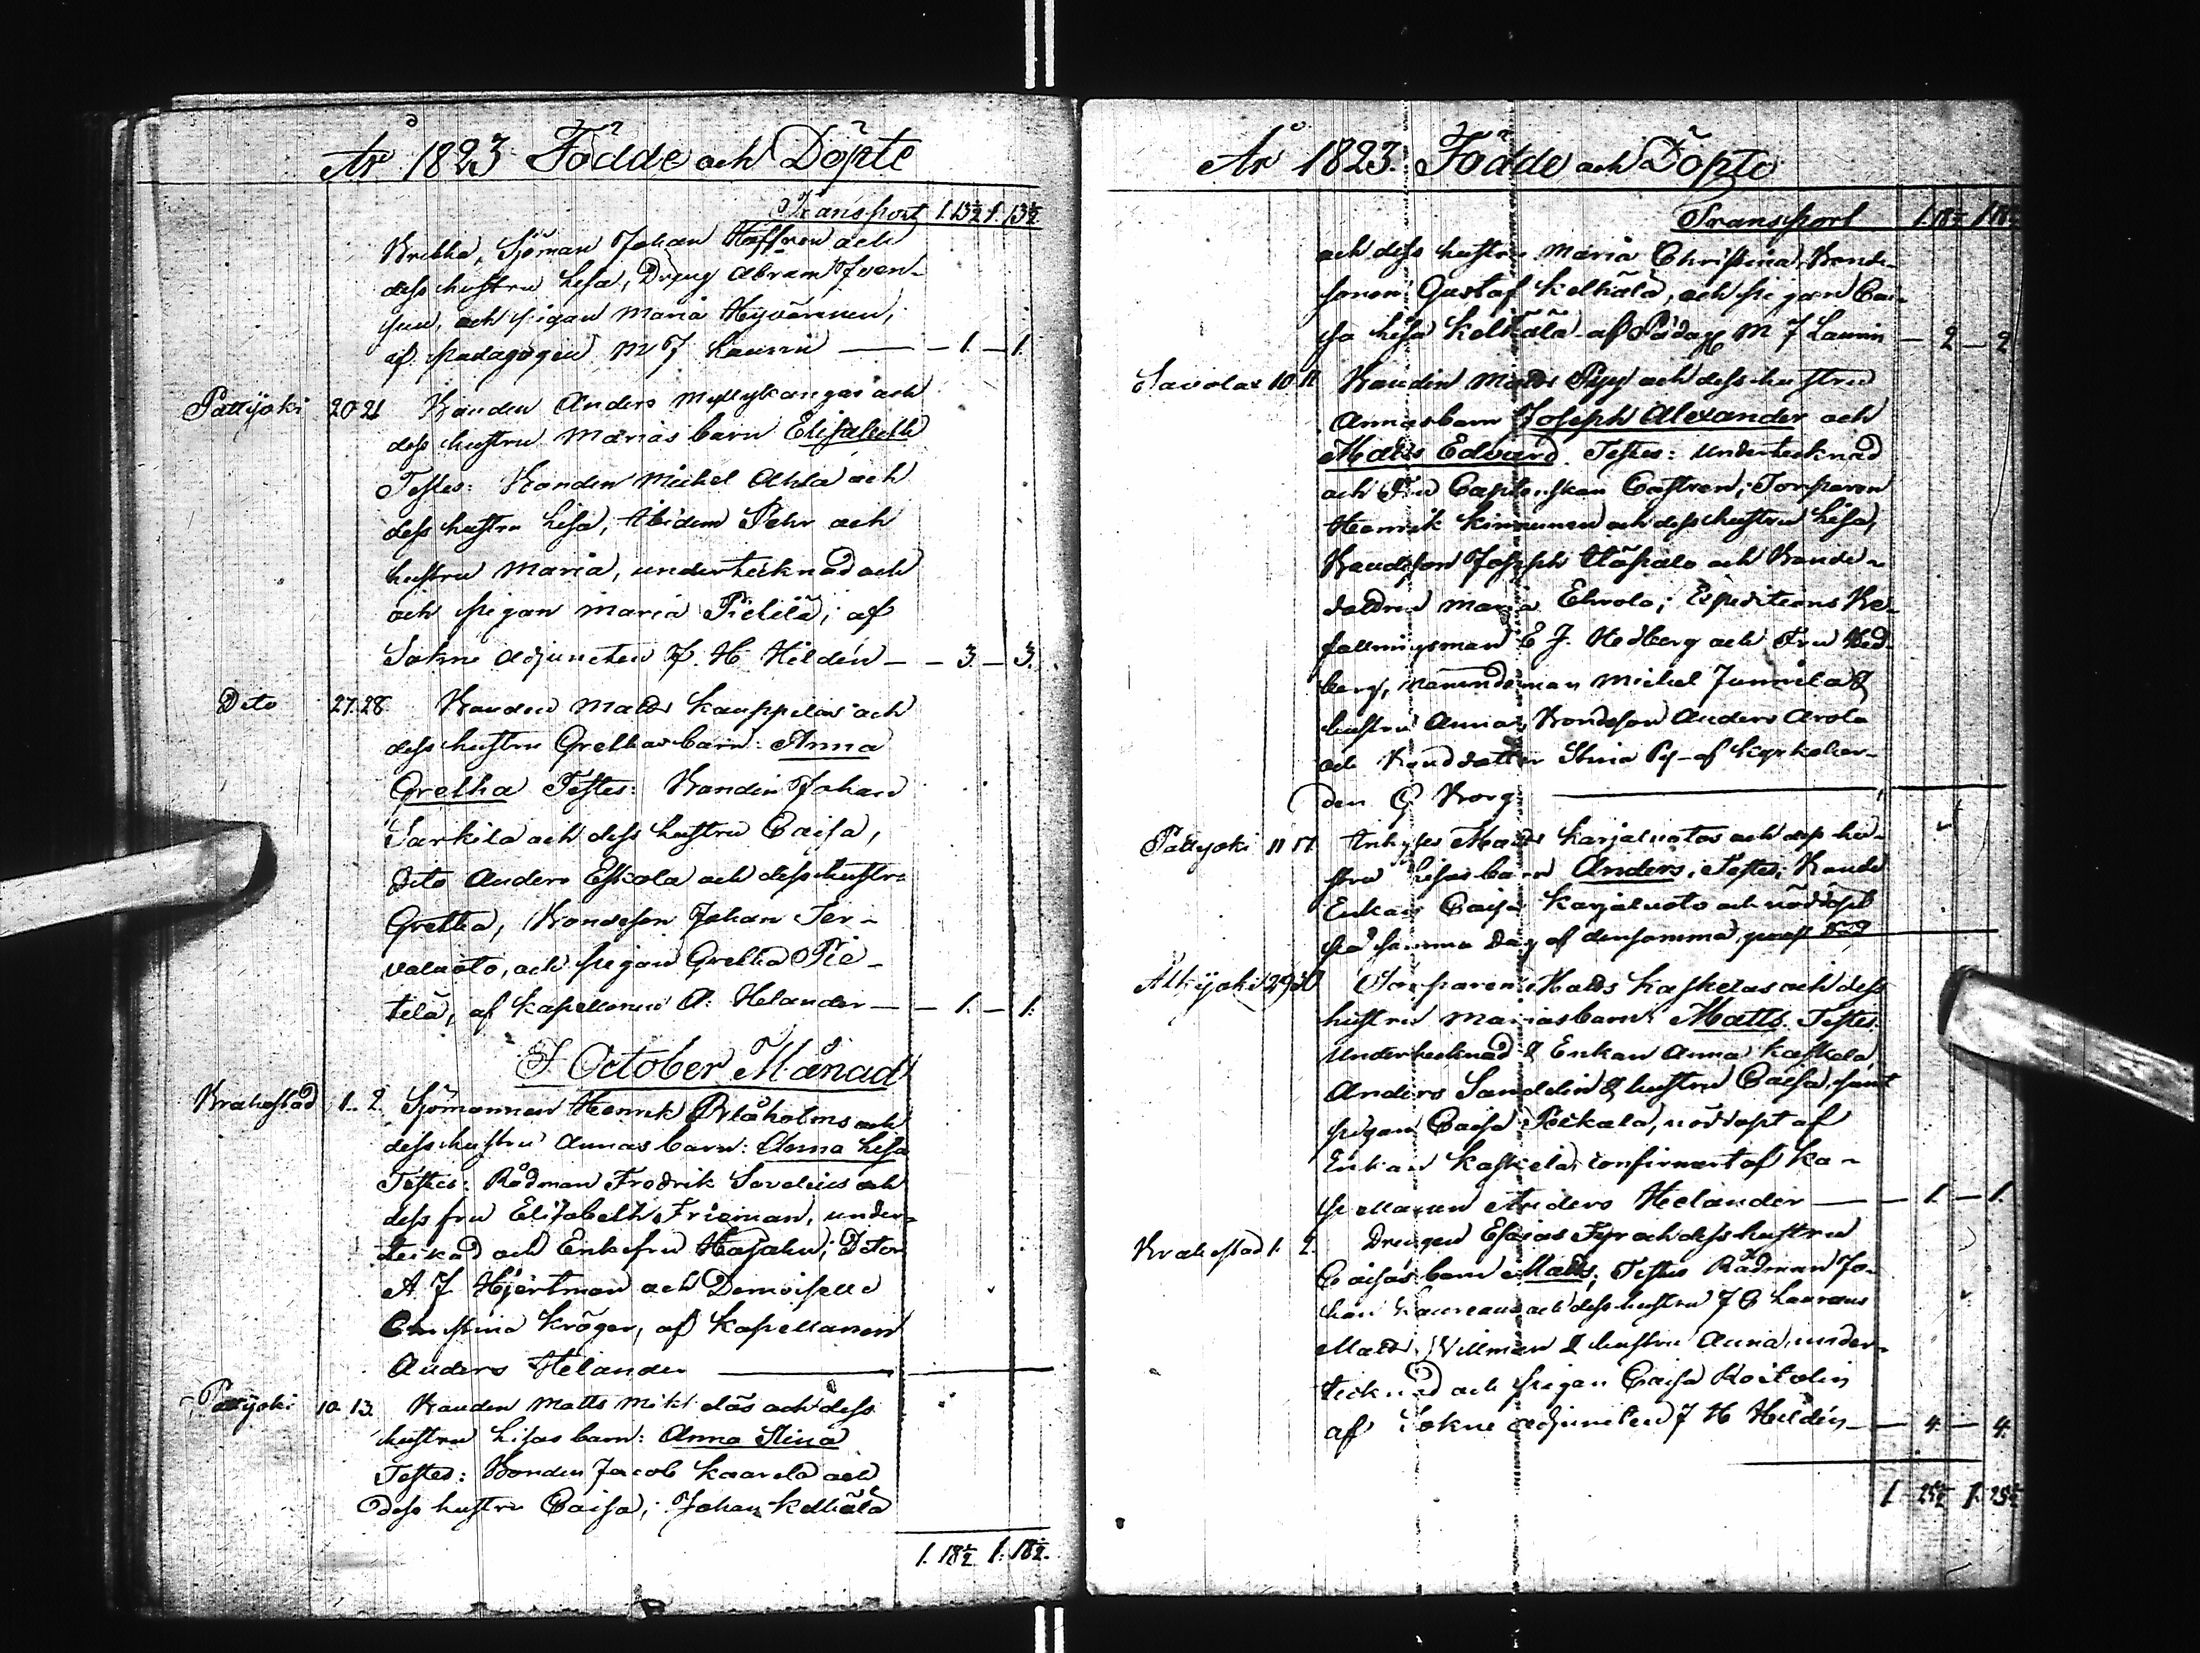 År 1823 Födde och Döpte
Transport 1. 13½ 1. 13½
Britha, Sjöman Johan Haffren och
dess hustru Lisa, Dräng Abram Iven-
och pigan Maria Hyvärinen,
af pædagogen M J Laurin — 1. — 1.
Pattijoki 20 21 Bonden Anders Myllykangas och
dess hustru Marias barn Elisabeth
Testes: Bonden Michel Ahla och
dess hustru Lisa, Ibidem Pehr och
hustru Maria, undertecknad och
och pigan Maria Pietilä; af
Sokne Adjuncten J. H. Hildén — 3. — 3.
Dito 27. 28 Bonden Matts Kauppilas och
dess hustru Grethas barn: Anna
Gretha Testes: Bonden Johan
Sarkila och dess hustru Caisa,
Dito Anders Eskola och dess hustru
Gretha, Bondeson Johan Ter-
valuoto, och pigan Gretha Pie-
tilä, af Kapellanen A. Helander — 1. — 1.
I October Månad
Brahestad 1. 2. Sjömannen Henrik Blåholms och
dess hustru Annas barn: Anna Lisa
Testes: Rådman Fredrik Sovelius och
dess fru Elisabeth Frieman, under-
teckad och Enkefru
A. J. Hjertman och Demoiselle
Christina Kröger, af Kapellanen
Anders Helander —
Pattijoki 10. 13. Bonden Matts Mikkeläs och dess
hustru Lisas barn: Anna Stina
Testes: Bonden Jacob Kaarela och
dess hustru Caisa; Johan Keltälä
1. 18½ 1. 18½
År 1823. Födde och Döpte
Transport 1. 18½ 1. 18½
och dess hustru Maria Christina, Bonde-
sonen Gustaf Keltälä, och pigan Cai-
sa Lisa Keltälä af Pædag M J Laurin — 2 — 2
Savolax 10 11 Bonden Matts Pyy och dess hustru
Annas barn Joseph Alexander och
Matts Edvard. Testes: Undertecknad
och Fru Castren; Torparen
Henrik Kinnunen och dess hustru Lisa,
Bondeson Joseph och Bonde-
dottren Maria Ehrola; Expeditions Be-
fallningsman E J. Hedberg och Fru Hed-
berg, Nämndeman Michel Junnila &
hustru Anna, Bondeson Anders Arola
och Bonddotter Stina Py - af Kyrkoher-
den G Borg —
Pattijoki 11 17. Inhyses Matts Karjaluotos och dess hu-
stru Lisas barn Anders; Testes: Bonde
Enkan Caisa Karjaluoto och nöddöpt
på samma dag af densamma,
Alkijoki 29 30 Torparen Matts Kaskelas och dess
hustru Marias barn: Matts. Testes
Undertecknad & Enkan Anna Kaskela
Anders Sandelin & hustru Caisa, samt
pigan Caisa Pickala, nöddöpt af
Enkan Kaskela, confirmert af Ka-
pellanen Anders Helander — 1. — 1.
Brahestad 1. 2. Drengen Esaias Fyr och dess hustru
Caisas barn Matts; Testes Rådman Jo-
han Laureaus och dess hustru J C Laureaus
Matts Villman & hustru Anna, under-
tecknad och pigan Caisa Koitolin
af Sokne adjuncten J H Hildén — 4. — 4.
1. 25½ 1. 25½